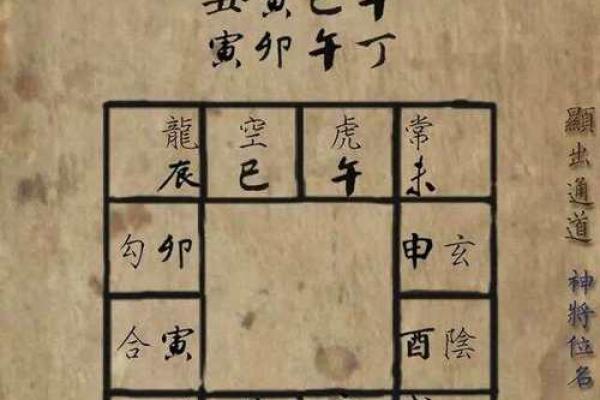 丑寅巳午
寅卯午丁
龍空虎常
辰巳午未
勾卯申玄
合寅酉陰
顯出通道
神將位名